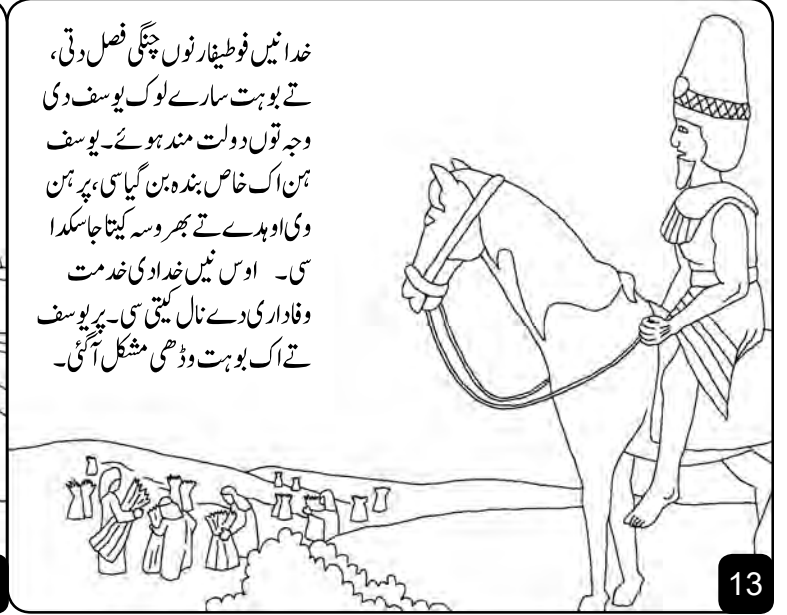 خدا نیں فوطیفار نوں چنگی فصل دتی،
تے بوہت سارے لوک یوسف دی
وجہ توں دولت مند ہوئے۔ یوسف
ہن اک خاص بندہ بن گیا سی، پر ہن
وی اوہدے تے بھروسہ کیتا جا سکدا
سی۔ اوس نیں خدا دی خدمت
وفاداری دے نال کیتی سی۔ پر یوسف
تے اک بوہت وڈھی مشکل آ گئی۔
13